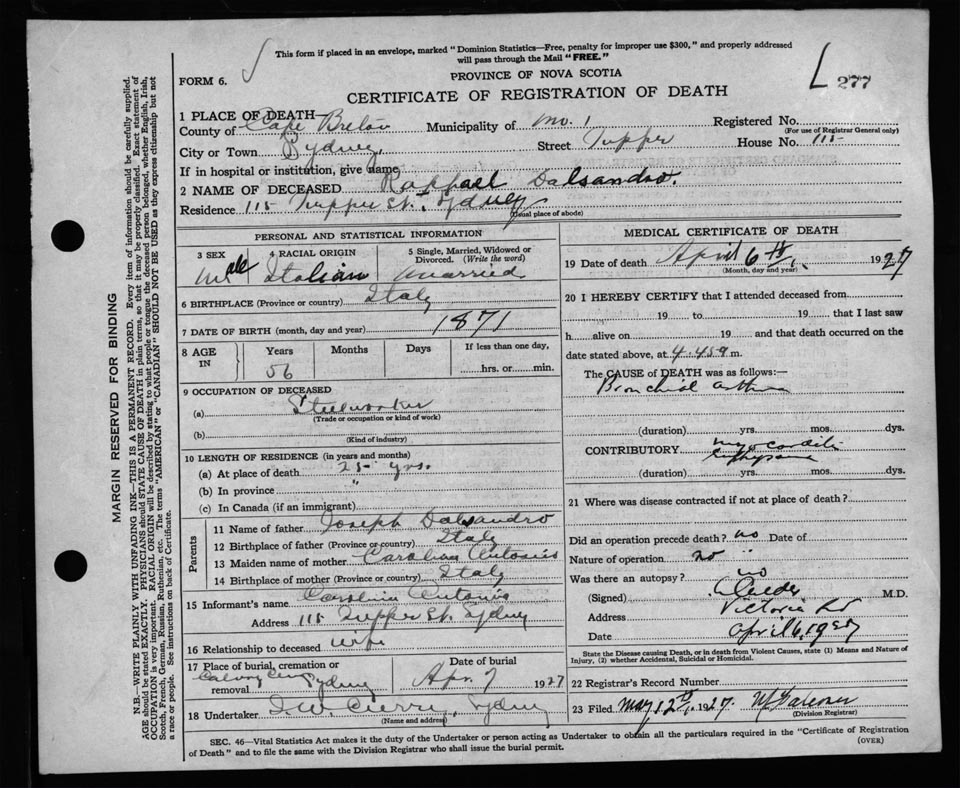 This form if placed in an envelope, marked "Dominion Statistics—Free, penalty for improper use $300," and properly addressed
will pass through the Mail "FREE."
FORM 6.
PROVINCE OF NOVA SCOTIA
L 277
CERTIFICATE OF REGISTRATION OF DEATH
1 PLACE OF DEATH—
County of Cape Breton Municipality of No. 1 Registered No.
(For use of Registrar General only)
City or Town Sydney Street Tupper House No. 115
If in hospital or institution, give name
2 NAME OF DECEASED Raphael Dalsandro.
Residence 115 Tupper St. Sydney
(Usual place of abode)
MARGIN RESERVED FOR BINDING
N.B.—WRITE PLAINLY WITH UNFADING INK—THIS IS A PERMANENT RECORD. Every item of information should be carefully supplied.
AGE should be stated EXACTLY. PHYSICIANS should STATE CAUSE OF DEATH in plain terms, so that it may be properly classified. Exact statement of
OCCUPATION is very important. RACIAL ORIGIN will be described by stating to what people or tongue the deceased person belonged, whether English, Irish,
Scotch, French, German, Russian, Ruthenian, etc. The terms "AMERICAN" or "CANADIAN" SHOULD NOT BE USED as they express citizenship but not
a race or people. See instructions on back of Certificate.
PERSONAL AND STATISTICAL INFORMATION
3 SEX 4 RACIAL ORIGIN 5 Single, Married, Widowed or
Divorced. (Write the word)
Male Italian Married
6 BIRTHPLACE (Province or country) Italy
7 DATE OF BIRTH (month, day and year) 1871
8 AGE IN Years Months Days If less than one day,
56 hrs. or min.
9 OCCUPATION OF DECEASED
(a) Steelworker
(Trade or occupation or kind of work)
(b)
(Kind of industry)
10 LENGTH OF RESIDENCE (in years and months)
(a) At place of death 25 yrs.
(b) In province "
(c) In Canada (if an immigrant)
Parents
11 Name of father Joseph Dalsandro
12 Birthplace of father (Province or country) Italy
13 Maiden name of mother
14 Birthplace of mother (Province or country) Italy
15 Informant's name
Address 115 Tupper St. Sydney
16 Relationship to deceased wife
17 Place of burial, cremation or Date of burial
removal Calvary Cem Sydney Apr. 7 1927
18 Undertaker Sydney
(Name and address)
MEDICAL CERTIFICATE OF DEATH
19 Date of death April 6th, 1927
(Month, day and year)
20 I HEREBY CERTIFY that I attended deceased from
19 to 19 that I last saw
h alive on 19 and that death occurred on the
date stated above, at 4.45 m.
The CAUSE of DEATH was as follows:—
Bronchial asthma
(duration) yrs. mos. dys.
CONTRIBUTORY
(duration) yrs. mos. dys.
21 Where was disease contracted if not at place of death?
Did an operation precede death? no Date of
Nature of operation no "
Was there an autopsy? no
(Signed) M.D.
Address Victoria Rd
Date April 6, 1927
State the Disease causing Death, or in death from Violent Causes, state (1) Means and Nature of
Injury, (2) whether Accidental, Suicidal or Homicidal.
22 Registrar's Record Number
23 Filed May 12th, 1927.
(Division Registrar)
SEC. 46—Vital Statistics Act makes it the duty of the Undertaker or person acting as Undertaker to obtain all the particulars required in the "Certificate of Registration
of Death" and to file the same with the Division Registrar who shall issue the burial permit.
(OVER)